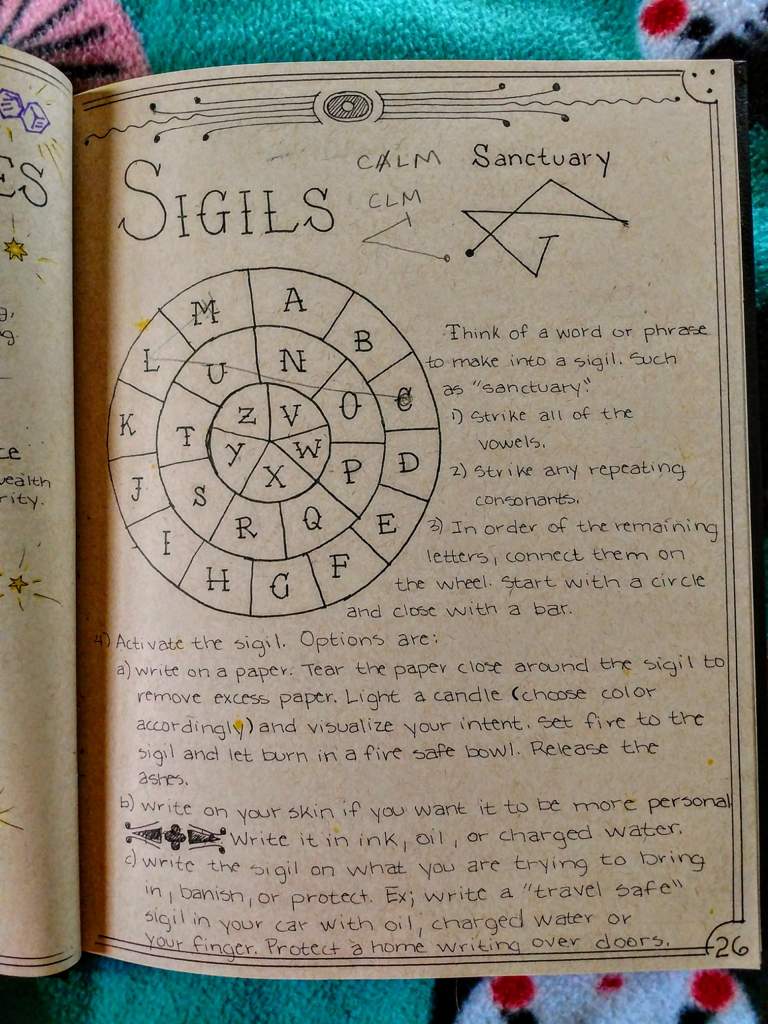 ES
SIGILS
CALM Sanctuary
CLM
M A
L U N B
K T Z V O C
J S Y X W P D
I R Q E
H G F
Think of a word or phrase
to make into a sigil. Such
as "sanctuary".
1) Strike all of the
vowels.
2) Strike any repeating
consonants.
3) In order of the remaining
letters, connect them on
the wheel. Start with a circle
and close with a bar.
4) Activate the sigil. Options are:
a) write on a paper. Tear the paper close around the sigil to
remove excess paper. Light a candle (choose color
accordingly) and visualize your intent. Set fire to the
sigil and let burn in a fire safe bowl. Release the
ashes.
b) write on your skin if you want it to be more personal
Write it in ink, oil, or charged water.
c) write the sigil on what you are trying to bring
in, banish, or protect. Ex; write a "travel safe"
sigil in your car with oil, charged water or
your finger. Protect a home writing over doors.
26